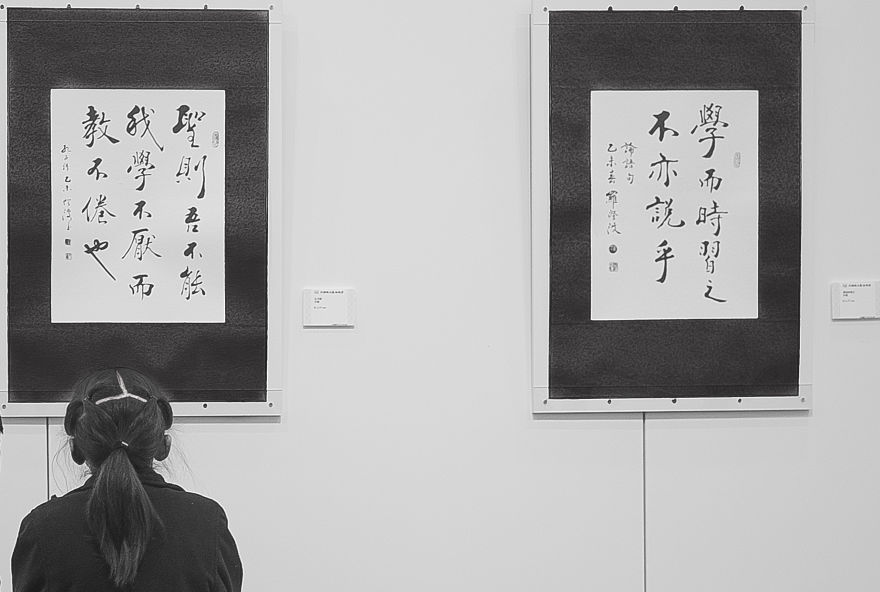 學而時習之
不亦説乎
論語句
乙未春 羅
聖則吾不能
我學不厭而
教不倦也
乙未